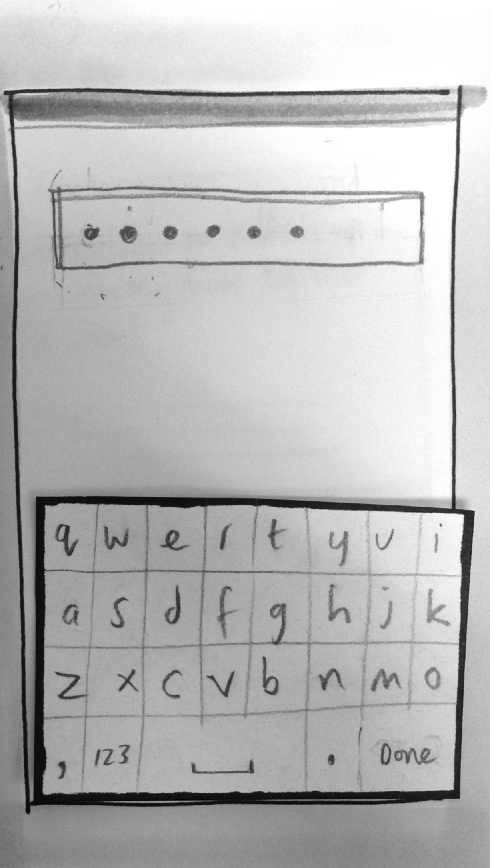 ● ● ● ● ● ●
q w e r t y u i
a s d f g h j k
z x c v b n m o
, 123 . Done